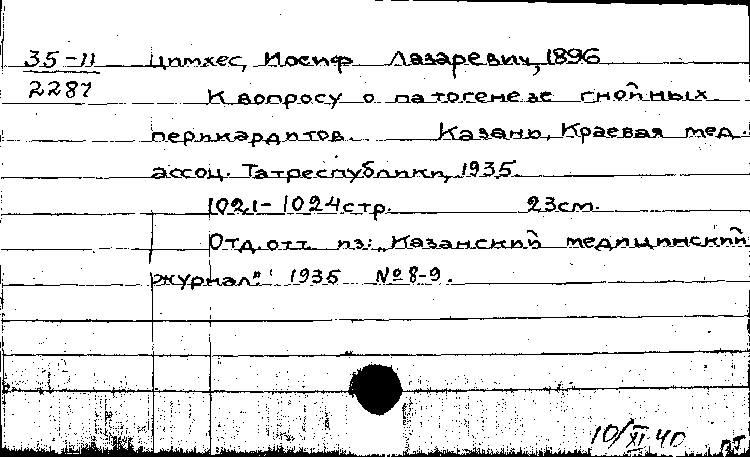 35-11
2287
Цимхес, Иосиф Лазаревич, 1896
К вопросу о патогенезе гнойных
перикардитов. Казань, Краевая мед.
ассоц. Татреспублики, 1935.
1021-1024 стр. 23 см.
Отд. отт. из: „Казанский медицинский
журнал" 1935 № 8-9.
10/XI 40